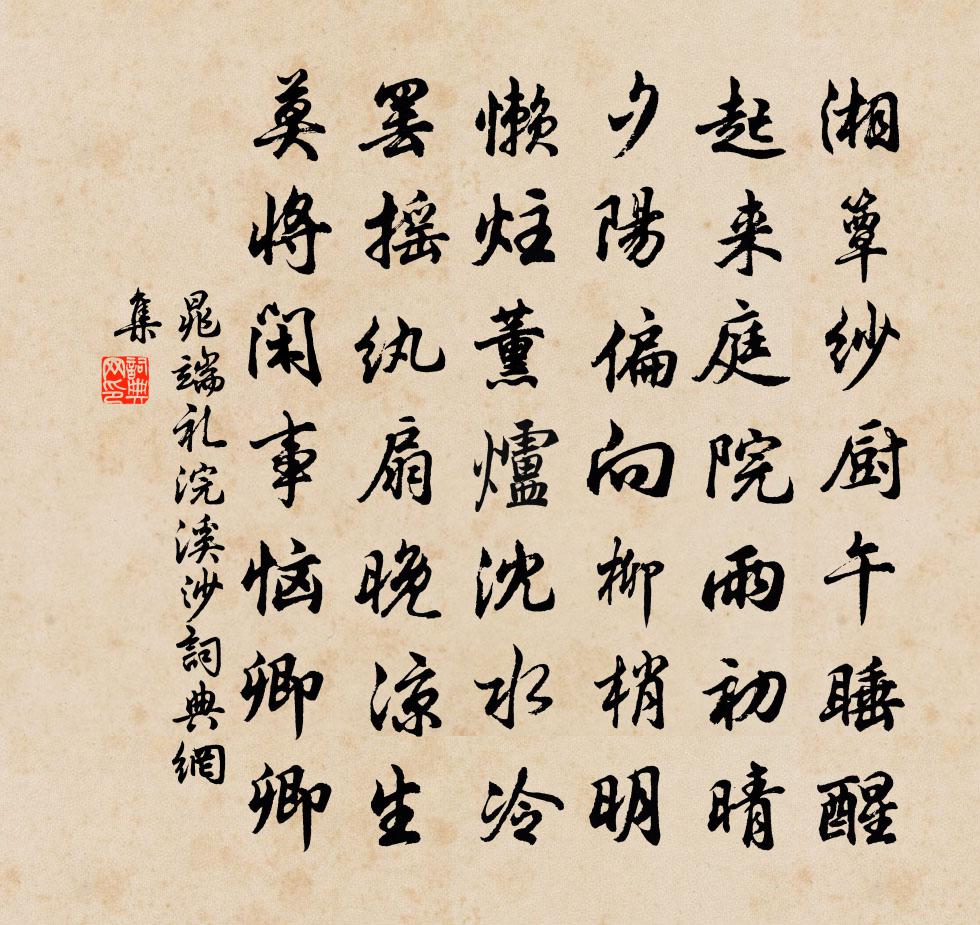 湘簟纱厨午睡醒
起来庭院雨初晴
夕陽偏向柳梢明
懒炷薰爐沈水冷
罢摇纨扇晚凉生
莫将闲事恼卿卿
晁端礼浣溪沙詞典網
集
詞典
网印